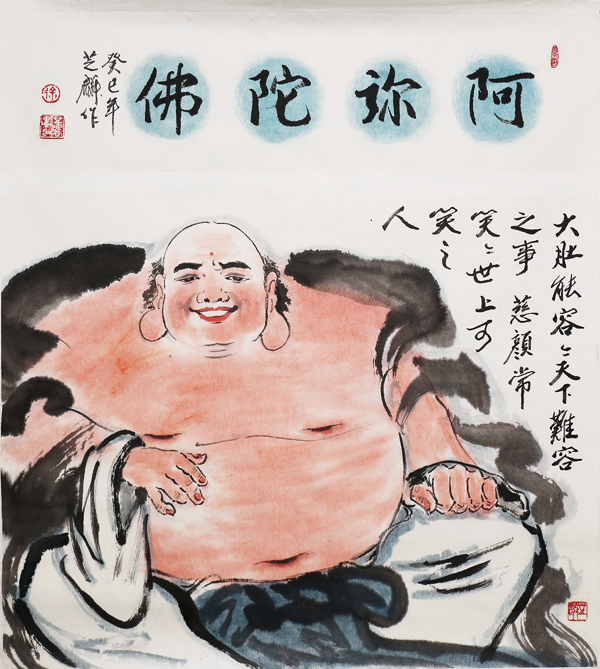 阿弥陀佛
癸巳年
芝麟作
大肚能容々天下難容
之事 慈顏常
笑々世上可
笑之
人